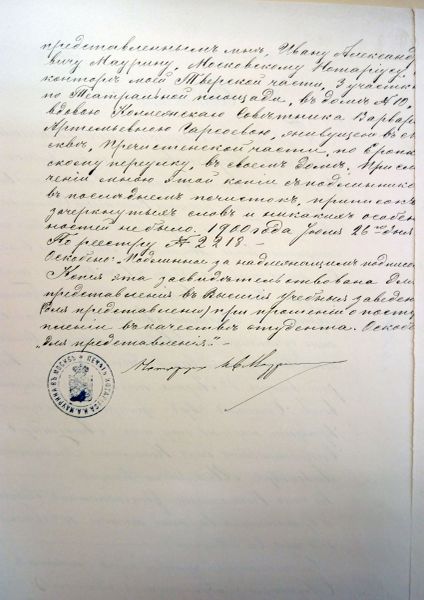 представленнымъ мнѣ, Ивану Александро-
вичу Маурину, Московскому Нотаріусу,
конторѣ моей Тверской части, 3 участка
по Театральной площади, въ домѣ № 19,
вдовою Коллежскаго Совѣтника Варвар
Артемьевною живущею въ
Москвѣ, Пречистенской части, по
скому переулку, въ своемъ домѣ. При сли-
ченіи мною этой копіи съ подлинником
въ послѣднемъ почистокъ, приписок
зачеркнутыхъ словъ и никакихъ особен-
ностей не было. 1900 года Іюля 26го дня
По реестру № 2218.—
Оскоблено: "Подлинное за надлежащимъ подписом
Копія эта засвидѣтельствована для
представленія въ Высшія Учебныя заведен
(для представленія) при прошеніи о посту-
пленіи въ качествѣ студента. Оскобл
"для представленія".—
Нотаріусъ И. Мауринъ
ПЕЧАТЬ НОТАРІУСА И.А. МАУРИНА ВЪ МОСКВѢ